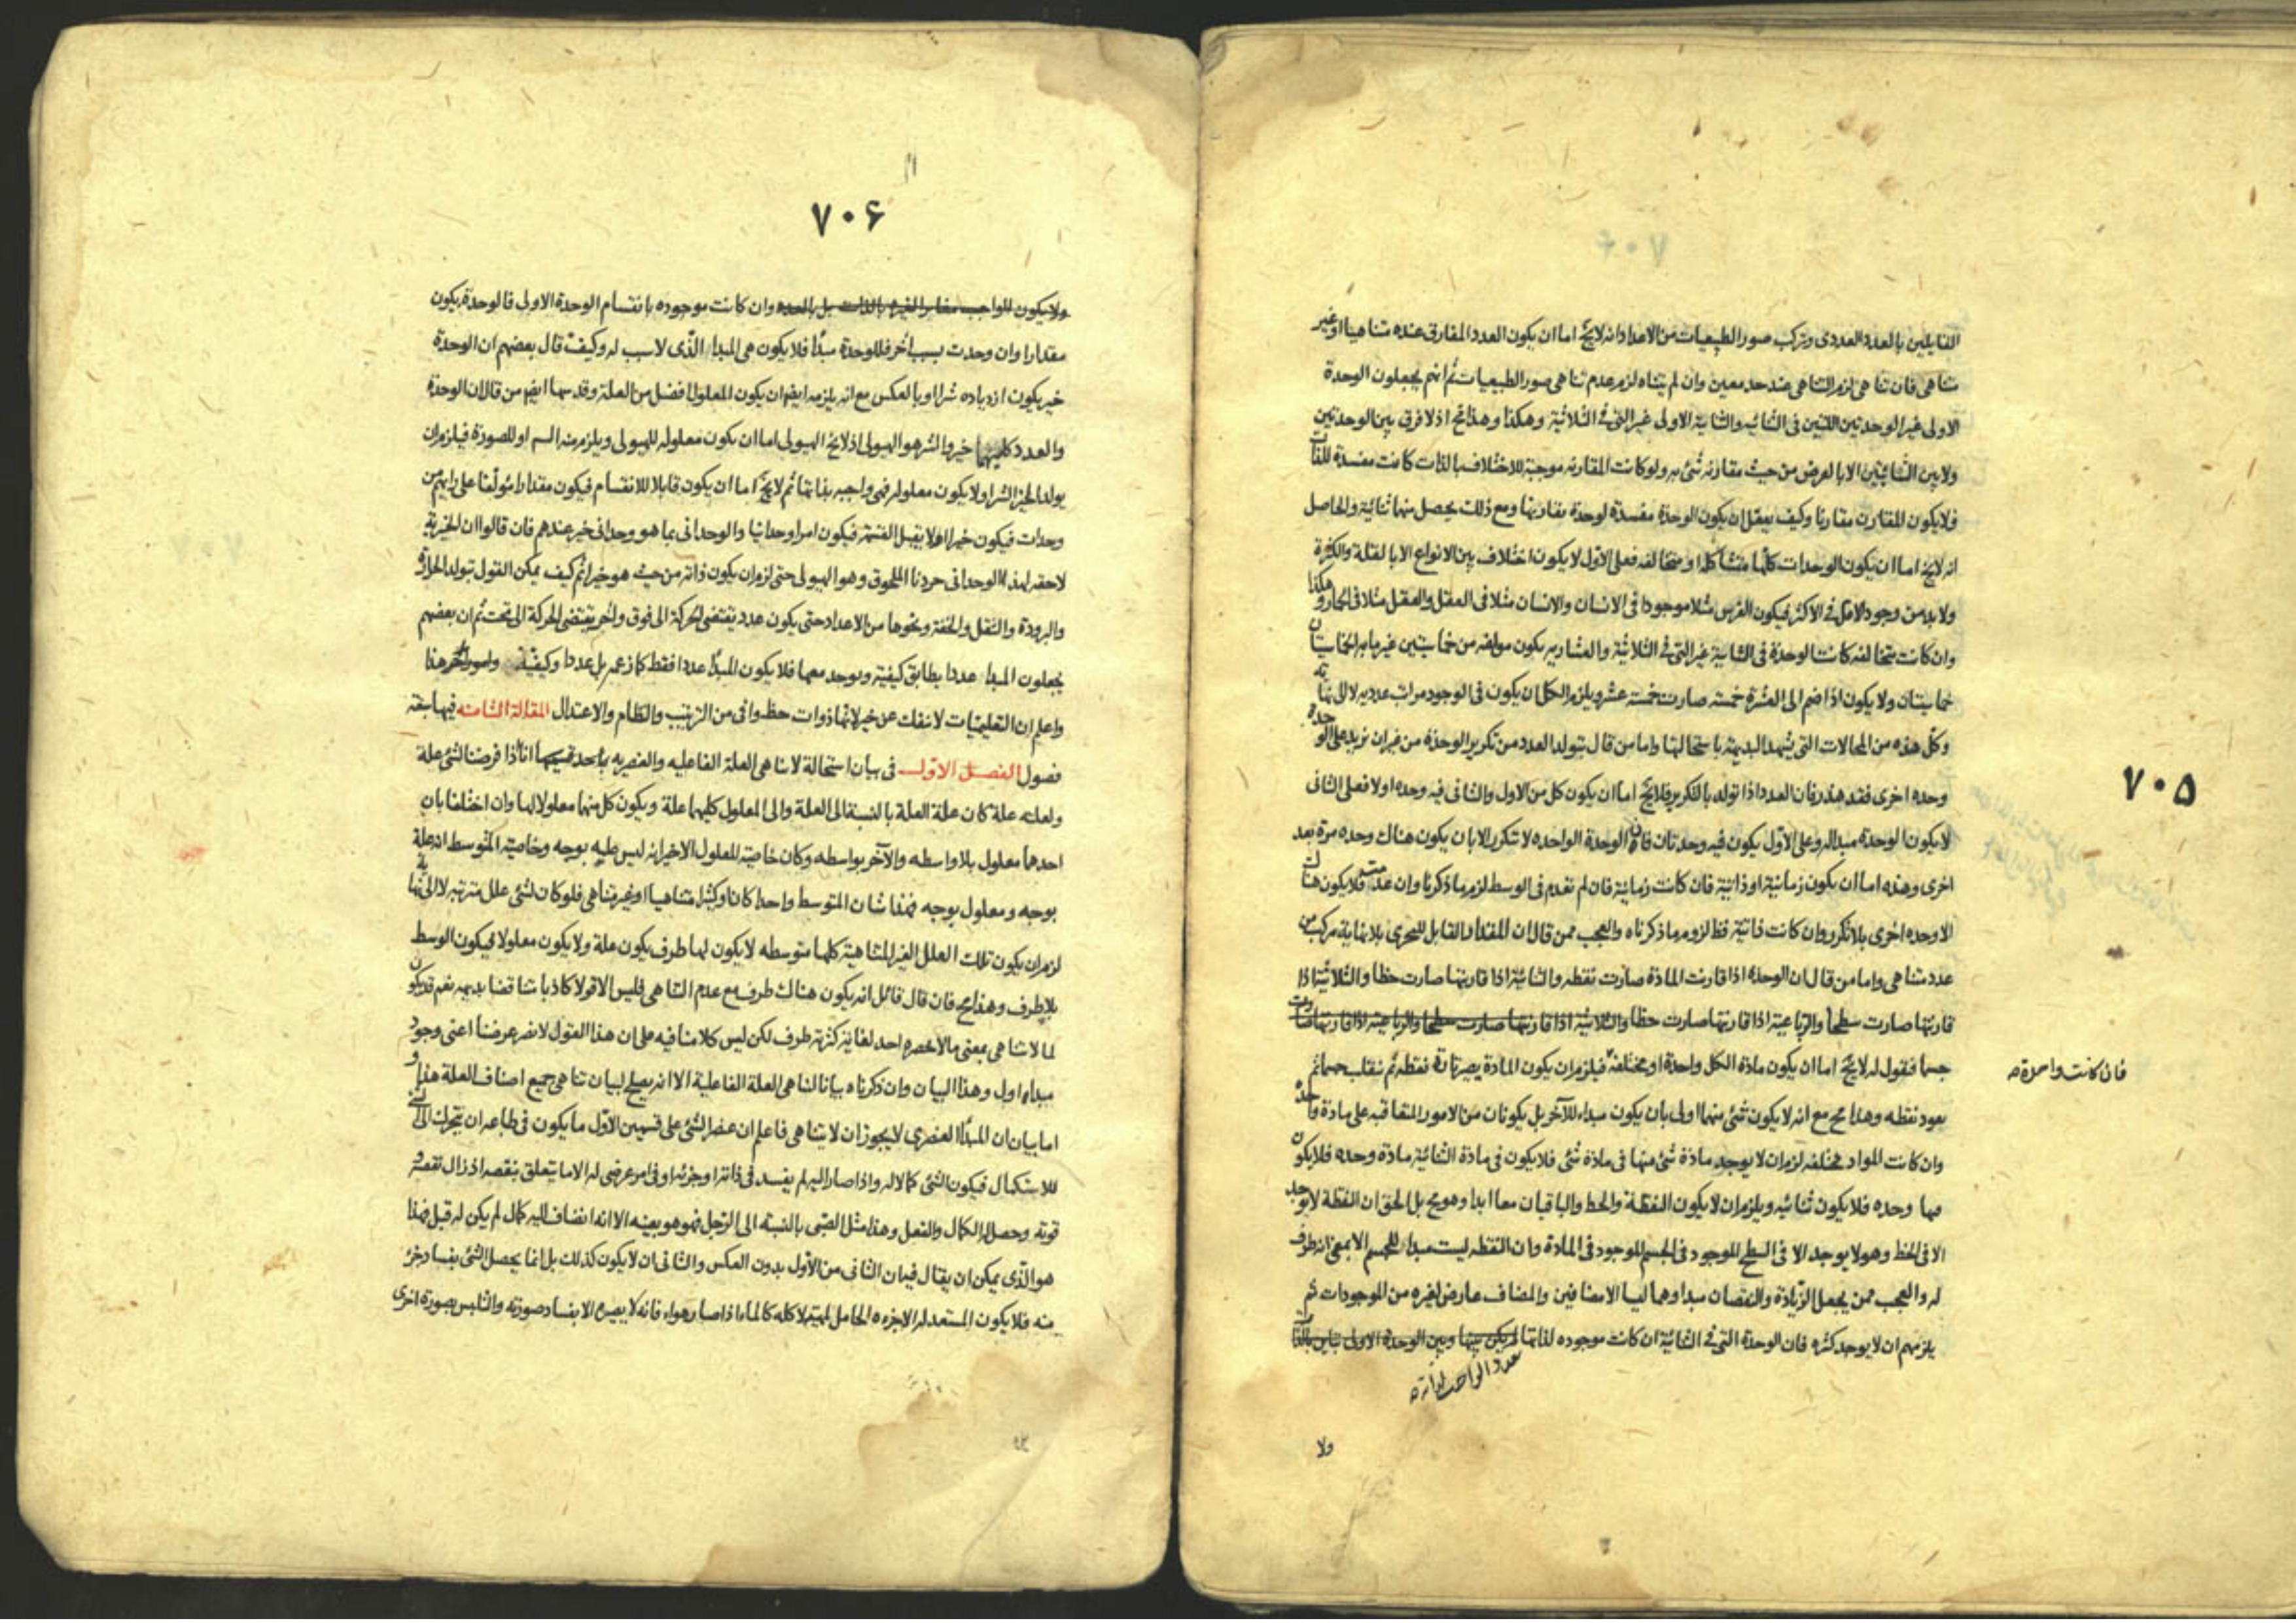 ٧٠۵
القايلين بالعدد العددى وتركب صور الطبيعيات من الاعداد انه لايخ اما ان يكون العدد المفارق عنده متناهيا او غير
متناهى فان تناهى لزم التناهى عند حد معين وان لم يتناه لزم عدم تناهى صور الطبيعيات ثم انهم يجعلون الوحدة
الاولى غير الوحدتين اللتين فى الثنائيه والثنائية الاولى غير التى فى الثلاثية وهكذا وهذا مح اذ لا فرق بين الوحدتين
ولا بين الثنائيتين الا بالعرض من حيث مقارنه شئ به ولو كانت المقارنه موجبة للاختلاف بالذات كانت مفسدة للذات
فلا يكون المقارن مقارنا وكيف يعقل ان يكون الوحدة مفسدة لوحدة بمقارنتها ومع ذلك يحصل منها ثنائية والحاصل
انه لايخ اما ان يكون الوحدات كلها متشاكله او متخالفه فعلى الاول لا يكون اختلاف بين الانواع الا بالقلة والكثرة
ولابد من وجود الاقل فى الاكثر فيكون الفرس مثلا موجودا فى الانسان والانسان مثلا فى العقل والعقل مثلا فى الحمار وهكذا
وان كانت متخالفه كانت الوحدة فى الثنايية غير التى فى الثلاثية والعشاريه يكون مولفه من خماسيتين غير ما به الخماسيتان
خماسيتان ولا يكون اذا ضم الى العشرة خمسة صارت خمسة عشر ويلزم الكل ان يكون فى الوجود مراتب عدديه لا الى نهاية
وكل هذه من المحالات التى يشهد البديهة باستحالتها واما من قال بتولد العدد من تكرير الوحدة من غير ان يزيد على الوحدة
وحده اخرى فقد هذر فان العدد اذا تولد بالتكرير فلايخ اما ان يكون كل من الاول والثانى فيه وحده او لا فعلى الثانى
لا يكون الوحدة مبدا له وعلى الاول يكون فيه وحدتان فان الوحدة الواحده لا تتكرر الا بان يكون هناك وحده مرة بعد
اخرى وهذه اما ان يكون زمانية او ذاتية فان كانت زمانية فان لم تعدم فى الوسط لزم ما ذكرنا وان عدمت فلا يكون هناك
الا وحده اخرى بلا تكرر وان كانت ذاتية فظ لزوم ما ذكرناه والعجب ممن قال ان المقدار القابل للتجزى بلا نهاية مركب من
عدد متناهى واما من قال ان الوحدة اذا قارنت المادة صارت نقطه والثنائية اذا قارنتها صارت خطا والثلاثية اذا
قارنتها صارت سطحا والرباعية اذا قارنتها صارت خطا والثلاثية اذا قارنتها صارت سطحا والرباعية اذا قارنتها صارت
جسما فنقول له لايخ اما ان يكون مادة الكل واحدة او مختلفة فيلزم ان يكون المادة يصير تارة نقطه ثم تنقلب جسما ثم
فان كانت واحدة
يعود نقطه وهذا مح مع انه لا يكون شئ منهما اولى بان يكون مبدا للآخر بل يكونان من الامور المتعاقبه على مادة واحده
وان كانت المواد مختلفه لزم ان لا يوجد مادة شئ منها فى مادة شئ فلا يكون فى مادة الثنائية مادة وحده فلا يكون
فيها وحده فلا يكون ثنائيه ويلزم ان لا يكون النقطة والخط والباقيان معا ابدا وهو مح بل الحق ان النقطة لا يوجد
الا فى الخط وهو لا يوجد الا فى السطح الموجود فى الجسم الموجود فى المادة وان النقطه ليست مبدا للجسم الا بمعنى انه طرف
له والعجب ممن يجعل الزيادة والنقصان مبدا وهما ليسا الا مضافين والمضاف عارض لغيره من الموجودات ثم
يلزمهم ان لا يوجد كثره فان الوحدة التى فى الثنائية ان كانت موجوده لذاتها لم يكن بينها وبين الوحدة الاولى تباين بالذات
عدد الواجب لذاته
ولا
٧٠۶
ولا يكون الواجب مغايرا لغيره بالذات بل بالعدد وان كانت موجوده بانقسام الوحدة الاولى فالوحدة يكون
مقدارا وان وحدت بسبب آخر فللوحدة مبدأ فلا يكون هى المبدا الذى لا سبب له وكيف قال بعضهم ان الوحدة
خير يكون ازدياده شرا او بالعكس مع انه يلزمه ايضا ان يكون المعلول افضل من العلة وقد سها ايضا من قال ان الوحدة
والعدد كليهما خير والشر هو الهيولى اذ لايخ الهيولى اما ان يكون معلوله للهيولى ويلزم منه التسم او للصورة فيلزم ان
يولد الخير الشر او لا يكون معلوله فهى واجبه بذاتها ثم لايخ اما ان يكون قابلا للانقسام فيكون مقدارا مؤلفا على رايهم من
وحدات فيكون خيرا او لا يقبل القسمة فيكون امرا وحدانيا والوحدانى بما هو وحدانى خير عندهم فان قالوا ان الخيرية
لاحقه لهذا الوحدانى جردنا الملحوق وهو الهيولى حتى لزم ان يكون ذاته من حيث هو خيرا ثم كيف يمكن القول بتولد الحرارة
والبرودة والثقل والخفة ونحوها من الاعداد حتى يكون عدد يقتضى الحركة الى فوق وآخر يقتضى الحركة الى تحت ثم ان بعضهم
يجعلون المبدا عددا يطابق كيفية ويوجد معها فلا يكون المبدا عددا فقط كما زعمه بل عددا وكيفية هذا
واعلم ان التعليميات لا تنفك عن خير لانها ذوات حظ وافى من الترتيب والنظام والاعتدال المقالة الثامنه فيها سبعة
فصول الفصل الاول فى بيان استحالة لا تناهى العلة الفاعليه والعنصريه باحد قسميها انا اذا فرضنا لشئ علة
ولعلته علة كان علة العلة بالنسبة الى العلة والى المعلول كليهما علة ويكون كل منهما معلولا لها وان اختلفا بان
احدهما معلول بلا واسطه والآخر بواسطه وكان خاصية المعلول الاخير انه ليس علية بوجه وخاصية المتوسط انه علة
بوجه ومعلول بوجه فهذا شان المتوسط واحدا كان او كثيرا متناهيا او غير متناهى فلو كان لشئ علل مترتبه لا الى نهاية
لزم ان يكون تلك العلل الغير المتناهية كلها متوسطه لا يكون لها طرف يكون علة ولا يكون معلولا فيكون الوسط
بلا طرف وهذا مح فان قال قائل انه يكون هناك طرف مع عدم التناهى فليس الا قولا كاذبا متناقضا بديهيه نعم قد يكون
لما لا تناهى بمعنى ما لا يحصره احد لغاية كثرته طرف لكن ليس كلامنا فيه على ان هذا القول لا يضر غرضنا اعنى وجود
مبدا اول وهذا البيان وان ذكرناه بيانا لتناهى العلة الفاعلية الا انه يصلح لبيان تناهى جميع اصناف العلة هذا و
اما بيان ان المبدأ العنصرى لا يجوز ان لا يتناهى فاعلم ان عنصر الشئ على قسمين الاول ما يكون فى طباعه ان يتحرك الى الشئ
للاستكمال فيكون الشئ كمالا له واذا صار اليه لم يفسد فى ذاته او جزئه او فى امر عرضى له الا ما يتعلق بنقصه اذ زال نقصه و
قوته وحصل له الكمال والفعل وهذا مثل الصبى بالنسبة الى الرجل فهو هو بعينه الا انه انضاف اليه كمال لم يكن له قبل فهذا
هو الذى يمكن ان يقال فيه ان الثانى من الاول بدون العكس والثانى ان لا يكون كذلك بل انما يحصل الشئ بفساد جزء
منه فلا يكون المستعد له الا جزءه الحامل لهيئته لا كله كالماء اذا صار هواء فانه لا يصير الا بفساد صورته والتلبس بصورة اخرى